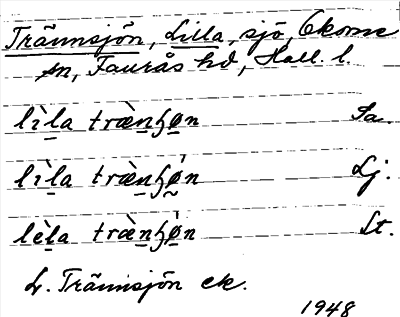 Trännsjön, Lilla, sjö, Okome
sn, Faurås hd, Hall. l.
lìla trænɧøn Sa.
lìla trænɧøn Lj.
lèla trænɧøn St.
L. Trännsjön ek.
1948